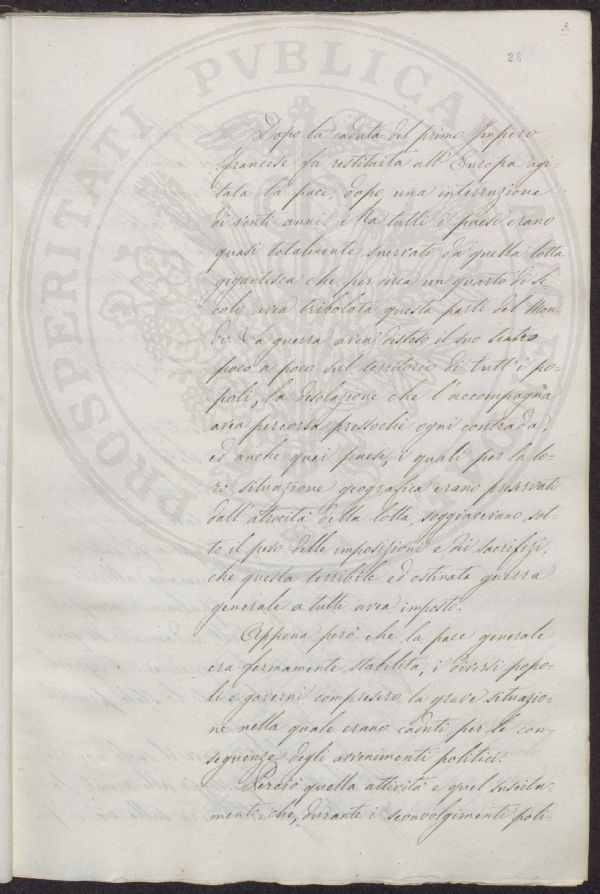 3.
28
Dopo la caduta del primo Impero
francese fu restituita all'Europa agi-
tata la pace, dopo una interruzione
di venti anni. Ma tutti i paesi erano
quasi totalmente snervati da quella lotta
gigantesca che per circa un quarto di se-
colo avea tribolata questa parte del Mon-
do. La guerra avea disteso il suo teatro
poco a poco sul territorio di tutt'i po-
poli, la desolazione che l'accompagna
avea percorsa pressochè ogni contrada,
ed anche quei paesi, i quali per la lo-
ro situazione geografica erano preservati
dall'atrocità della lotta, soggiacevano sot-
to il peso delle imposizioni e di sacrifizi,
che questa terribile ed ostinata guerra
generale a tutti avea imposti.
Appena però che la pace generale
era fermamente stabilita, i diversi popo-
li e governi compresero la grave situazio-
ne nella quale erano caduti per le con-
seguenze degli avvenimenti politici.
Perciò quella attività e quel suscita-
mento, che, durante i sconvolgimenti poli-
PROSPERITATI PVBLICAE